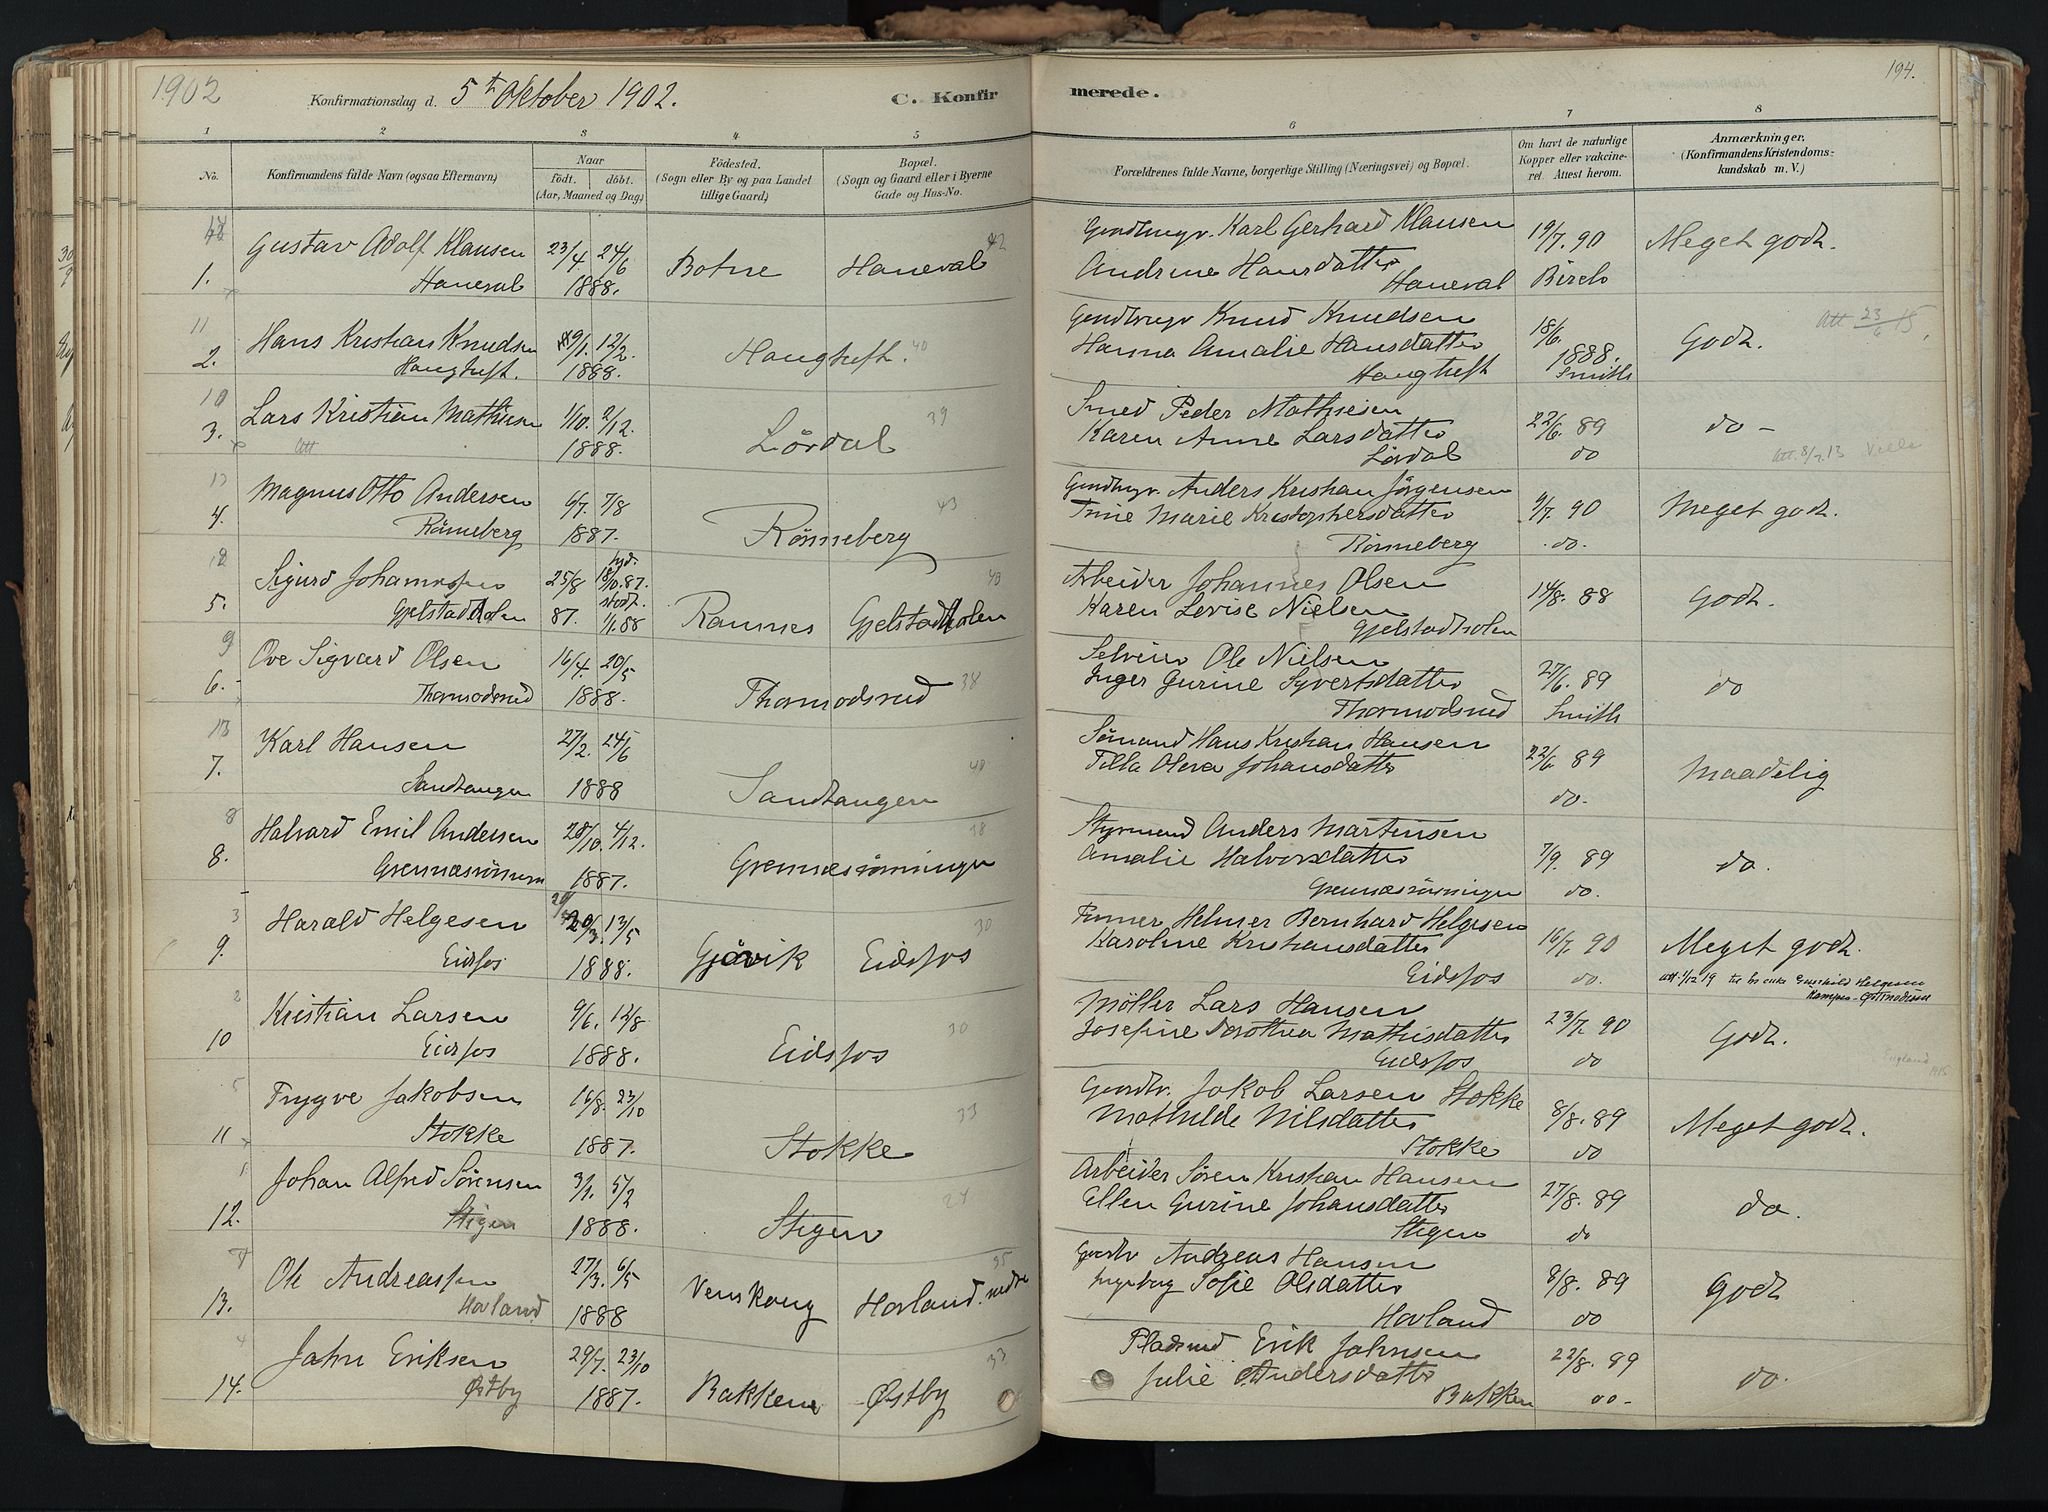 1902
Konfirmationsdag d. 5t Oktober 1902.
C. Konfirmerede.
194.
1 2 3 4 5 6 7 8
No.
Konfirmandens fulde Navn (ogsaa Efternavn)
Naar
födt. döbt.
(Aar, Maaned og Dag)
Födested.
(Sogn eller By og paa Landet
tillige Gaard)
Bopæl.
(Sogn og Gaard eller i Byerne
Gade og Hus-No.
Forældrenes fulde Navne, borgerlige Stilling (Næringsvei) og Bopæl.
Om havt de naturlige
Kopper eller vakcine-
ret. Attest herom.
Anmærkninger.
(Konfirmandens Kristendoms-
kundskab m. V.)
1. Gustav Adolf Klausen 23/4 24/6 Botne Haneval 42 Karl Gerhard Klausen 19/7. 90 Meget godt.
Haneval 1888. Andrine Hansdatter Haneval Birch
11
2. Hans Kristian Knudsen 12/2. Haugtuft. 40 Knud Knudsen 18/6. 1888. Godt. Att 23/6 15
Haugtuft. 1888. Hanna Amalie Hansdatter Haugtuft Smith
10
3. Lars Kristian Mathisen 1/10. 2/12. Lördal 39 Smed Peder Mathiesen 22/6. 89 do -
Att 1888. Karen Anne Larsdatter Lördal do Att. 8/7.13
4. Magnus Otto Andersen 6/7. 7/8 Rönneberg 43 Anders Kristian Jörgensen 9/7. 90 Meget godt.
Rönneberg 1887. Marie Kristophersdatter Rönneberg do.
12
5. Sigurd Johannessen 25/8 87. 18/10. 87. Ramnes Gjelstadholen 40 Arbeider Johannes Olsen 14/8. 88 Godt.
Gjelstadholen stadf. 1/1. 88 Karen Lovise Nielsen Gjelstadholen
9
6. Ove Sigvard Olsen 16/4. 20/5 Thormodsrud 38 Selveier Ole Nielsen 27/6. 89 do
Thormodsrud 1888. Inger Gurine Syvertsdatter Thormodsrud Smith
13
7. Karl Hansen 27/2. 24/6 Sandtangen 40 Sömand Hans Kristian Hansen 22/6. 89 Maadelig
Sandtangen 1888 Olava Johansdatter do.
8
8. Halvard Emil Andersen 28/10. 4/12. 38 Styrmand Anders Martinsen 7/9. 89 do.
1887. Amalie Halvorsdatter do.
3
9. Harald Helgesen 20/3. 13/5 Gjövik Eidsfos 30 Helmer Bernhard Helgesen 16/7. 90 Meget godt.
Eidsfos 1888. Karoline Kristiansdatter Eidsfos do. att. 1/12 19
2
10 Kristian Larsen 9/6. 12/8 Eidsfos 30 Möller Lars Hansen 23/7. 90 Godt.
Eidsfos 1888. Josefine Dorothea Mathisdatter Eidsfos do England 1915
5
11 Trygve Jakobsen 16/8. 23/10 Stokke 33 Jakob Larsen Stokke 8/8. 89 Meget godt.
Stokke 1887. Mathilde Nilsdatter Stokke do
1
12. Johan Alfred Sörensen 3/1. 5/2 Stigen 27 Arbeider Sören Kristian Hansen 27/8. 89 do.
Stigen 1888. Ellen Gurine Johansdatter Stigen do
13. Ole Andreassen 27/3. 6/5 Hovland nedre 35 Andreas Hansen 8/8. 89 Godt
Hovland 1888 Ingeborg Sofie Olsdatter Hovland do
4
14. John Eriksen 29/7. 23/10 Bakken Østby 33 Pladsmd Erik Johnsen 22/8. 89 do.
Østby 1887. Julie Andersdatter Bakken do-